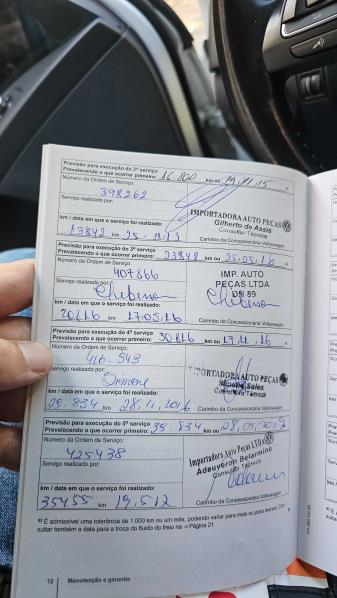 Previsão para execução do 2º serviço
Prevalecendo o que ocorrer primeiro: 16.800 km ou 19.11.15
Número da Ordem de Serviço:
398262
Serviço realizado por:
IMPORTADORA AUTO PEÇAS
Gilberto de Assis
Consultor Técnico
km / data em que o serviço foi realizado:
13842 25.11.15
Carimbo da Concessionária Volkswagen
Previsão para execução do 3º serviço
Prevalecendo o que ocorrer primeiro: 23842 km ou 25.05.16
Número da Ordem de Serviço:
407866
IMP. AUTO
PEÇAS LTDA
DN 89
Serviço realizado por:
km / data em que o serviço foi realizado:
20816 km 17.05.16
Carimbo da Concessionária Volkswagen
Previsão para execução do 4º serviço
Prevalecendo o que ocorrer primeiro: 30816 km ou 17.11.16
Número da Ordem de Serviço:
416.943
IMPORTADORA AUTO PEÇAS
Sales
Técnica
Serviço realizado por:
Simone
km / data em que o serviço foi realizado:
25.834 km 28.11.2016
Carimbo da Concessionária Volkswagen
Previsão para execução do 5º serviço
Prevalecendo o que ocorrer primeiro: 35.834 km ou
Número da Ordem de Serviço:
425438
Importadora Auto Peças LTDA
Adauyéron Belarmino
Consultor Técnico
Serviço realizado por:
km / data em que o serviço foi realizado:
35455 km 19.5.17
Carimbo da Concessionária Volkswagen
a) É admissível uma tolerância de 1.000 km ou um mês, podendo variar para mais ou para menos. Con-
sultar também a data para a troca do fluido do freio na ⇒ Página 21.
12 Manutenção e garantia